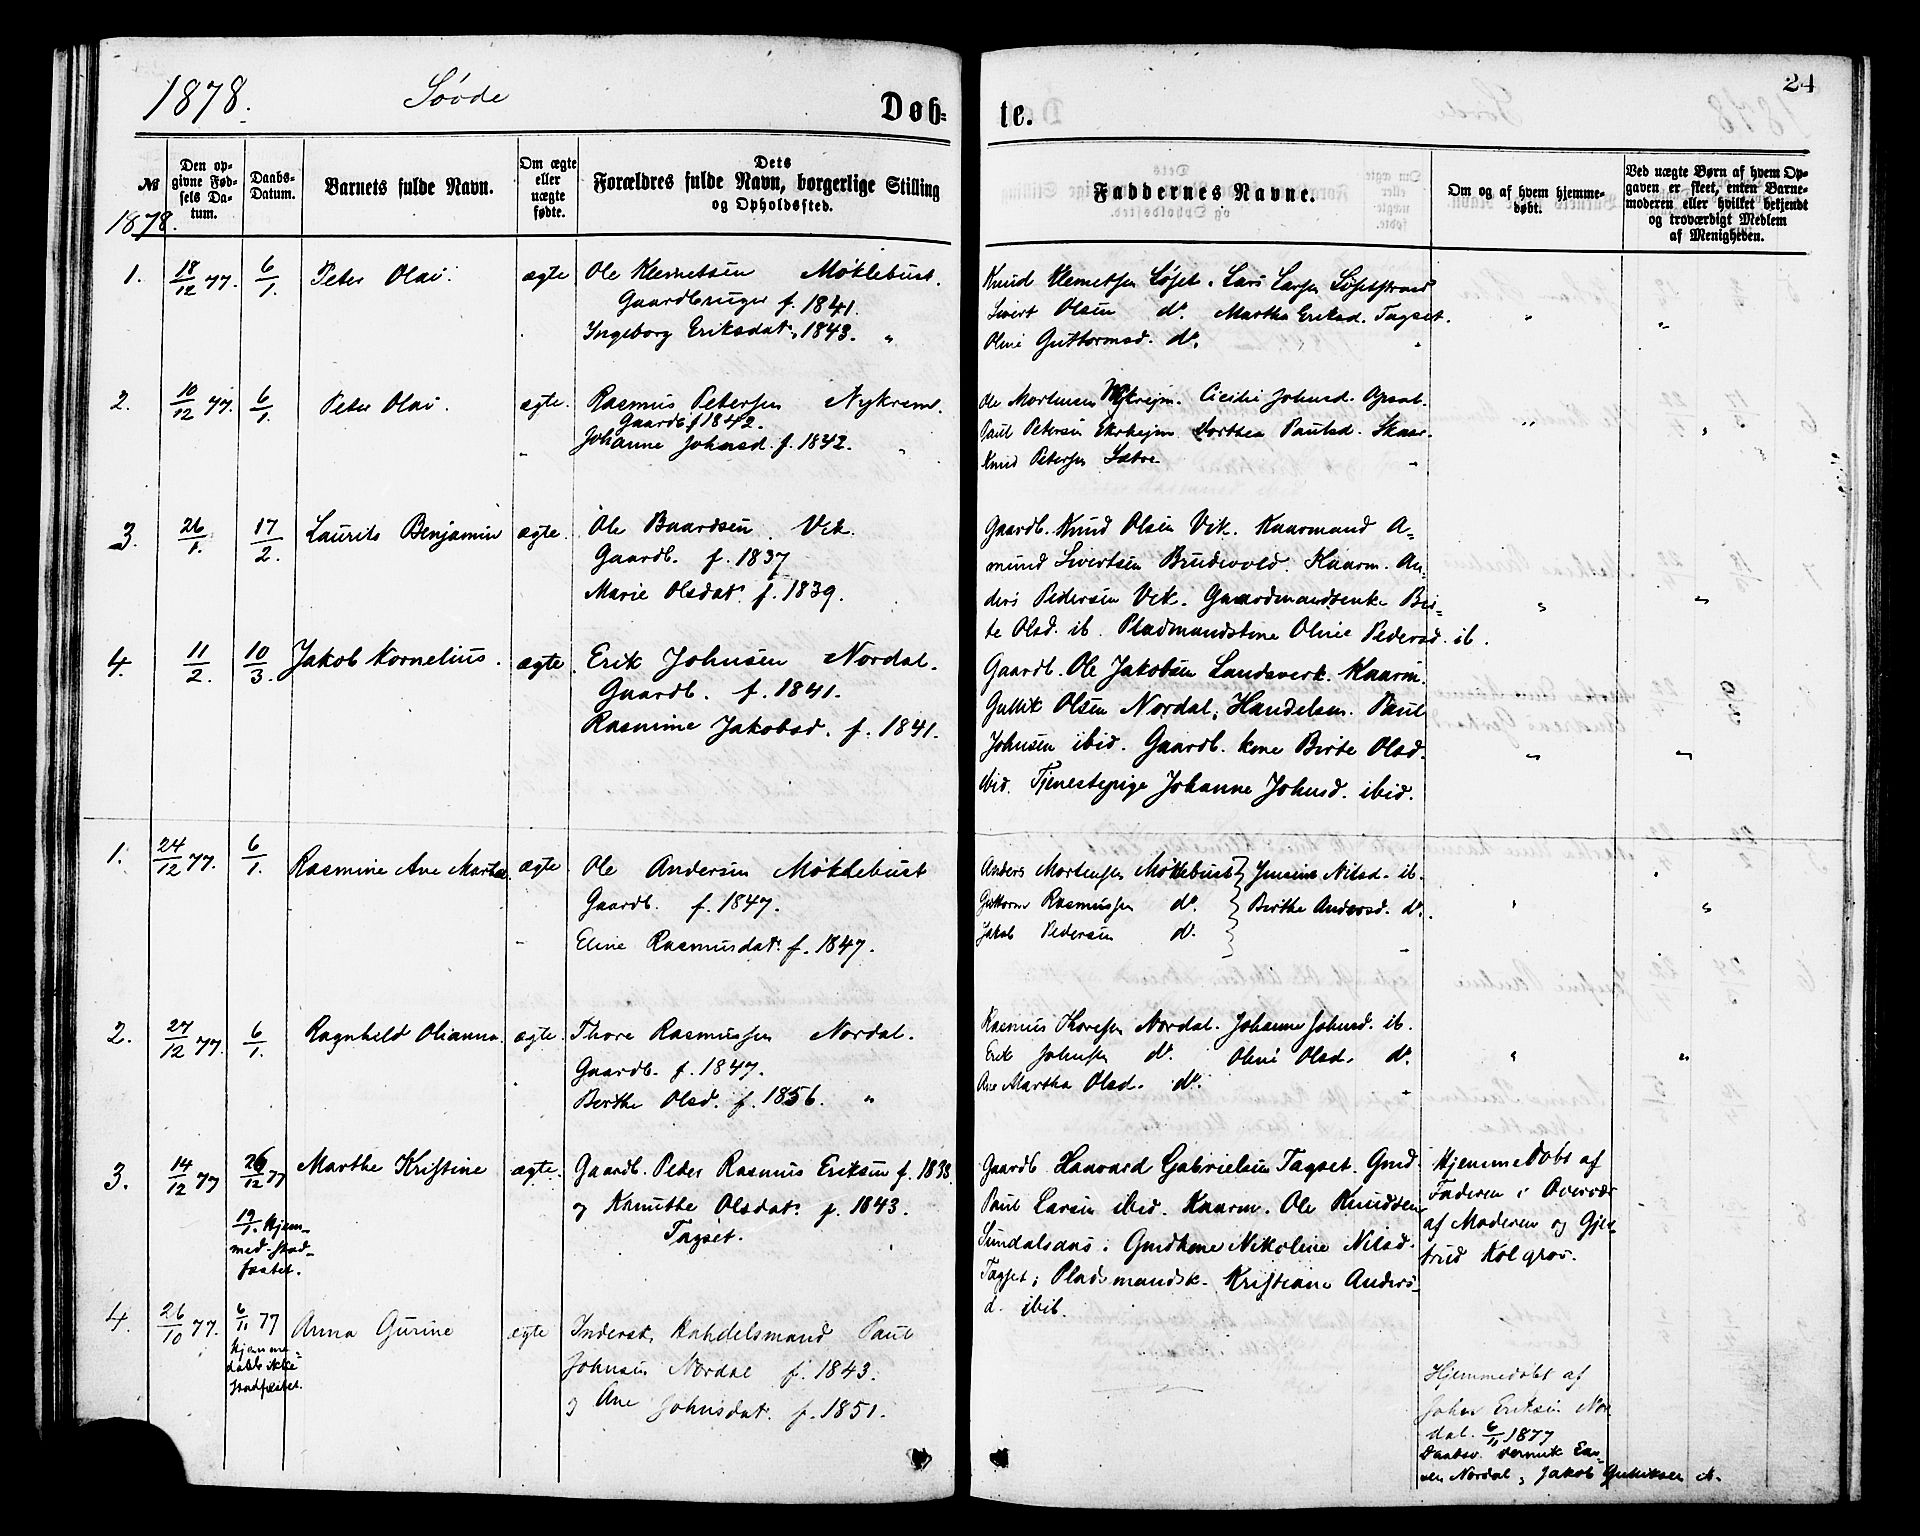 1878. Søvde Døb-
te. 24
№ Den opgivne Fødsels Datum. Daabs-Datum. Barnets fulde Navn. Om ægte eller uægte fødte. Dets Forældres fulde Navn, borgerlige Stilling og Opholdssted.
Faddernes Navne. Om og af hvem hjemmedøbt. Ved uægte Børn af hvem Opgaven er skeet, enten Barnemoderen eller hvilket bekjendt og troværdigt Medlem af Menigheden.
1878.
1. 18/12 77. 6/1. Peter Olai. ægte Ole Klemetsen Møklebust.
Gaardbruger f. 1841.
Ingeborg Eriksdat., 1843. "
Knud Klemetsen Løset. Lars Larsen Løsetstrand
Sivert Olsen do. Martha Eriksd. Tagset.
Oline Guttormsd. do.
2. 10/12 77. 6/1. Peter Olai. ægte. Rasmus Petersen Nykrem.
Gaardb. f 1842.
Johanne Johnsd. f. 1842. "
Ole Mortensen Nykrejm. Cicilie Johnsd. Opsal.
Paul Petersen Ekrhejm Dorthea Paulsd. Skaar.
Knud Petersen Sætre
3. 26/1. 17/2. Laurits Benjamin ægte. Ole Baardsen Vik.
Gaardb. f. 1837
Marie Olsdat. f. 1839.
Gaardb. Knud Olsen Vik. Kaarmand A-
mund Sivertsen Brudevold. Kaarm. An-
ders Pedersen Vik. Gaardmandsenke Bir-
te Olsd. ib. Pladsmandskone Oline Pedersd. ib.
4. 11/2. 10/3. Jakob Kornelius. ægte. Erik Johnsen Nordal.
Gaardb. f. 1841.
Rasmine Jakobsd. f. 1841.
Gaardb. Ole Jakobsen Landsverk. Kaarm.
Gullik Olsen Nordal, Handelsm. Paul
Johnsen ibid. Gaardb. kone Birte Olsd.
ibid. Tjenestepige Johanne Johnsd. ibid.
1. 24/12 77. 6/1. Rasmine Ane Marta. ægte. Ole Andersen Møklebust
Gaardb. f. 1847.
Eline Rasmusdat. f. 1847.
Anders Mortensen Møklebust } Jensine Nilsd. ib.
Guttorm Rasmussen do. } Birthe Andersd. do.
Jakob Pedersen do. }
2. 27/12 77. 6/1. Ragnhild Olianna. ægte. Thore Rasmussen Nordal.
Gaardb. f. 1847.
Berthe Olsd. f. 1856. "
Rasmus Thoresen Nordal. Johanne Johnsd. ib.
Erik Johnsen do. Oline Olsd. do.
Ane Martha Olsd. do.
3. 14/12 77 26/12 77 Marthe Kristine ægte. Gaardb. Peder Rasmus Eriksen f. 1838
og Knuthe Olsdat. f. 1843.
Tagset.
19/1. Hjem-
med. stad-
fæstet.
Gaardb. Haavard Gabrielsen Tagset. Gmd.
Paul Larsen ibid. Kaarm. Ole Knudsen
Sundalsaas. Gmdkone Nikoline Nilsd.
Tagset; Pladsmandsk. Kristiane Anders-
d. ibid.
Hjemmedøbt af
Faderen i Overvær
af Moderen og Gjer-
trud Kolgrov.
4. 26/10 77. 6/11 77 Anna Gurine ægte Inderst, Handelsmand Paul
Johnsen Nordal f. 1843.
og Ane Johnsdat. f. 1851.
Hjemme-
døbt ikke
stadfæstet.
Hjemmedøbt af
John Eriksen Nor-
dal. 6/11 1877
Nordal, Jakob Gulliksen